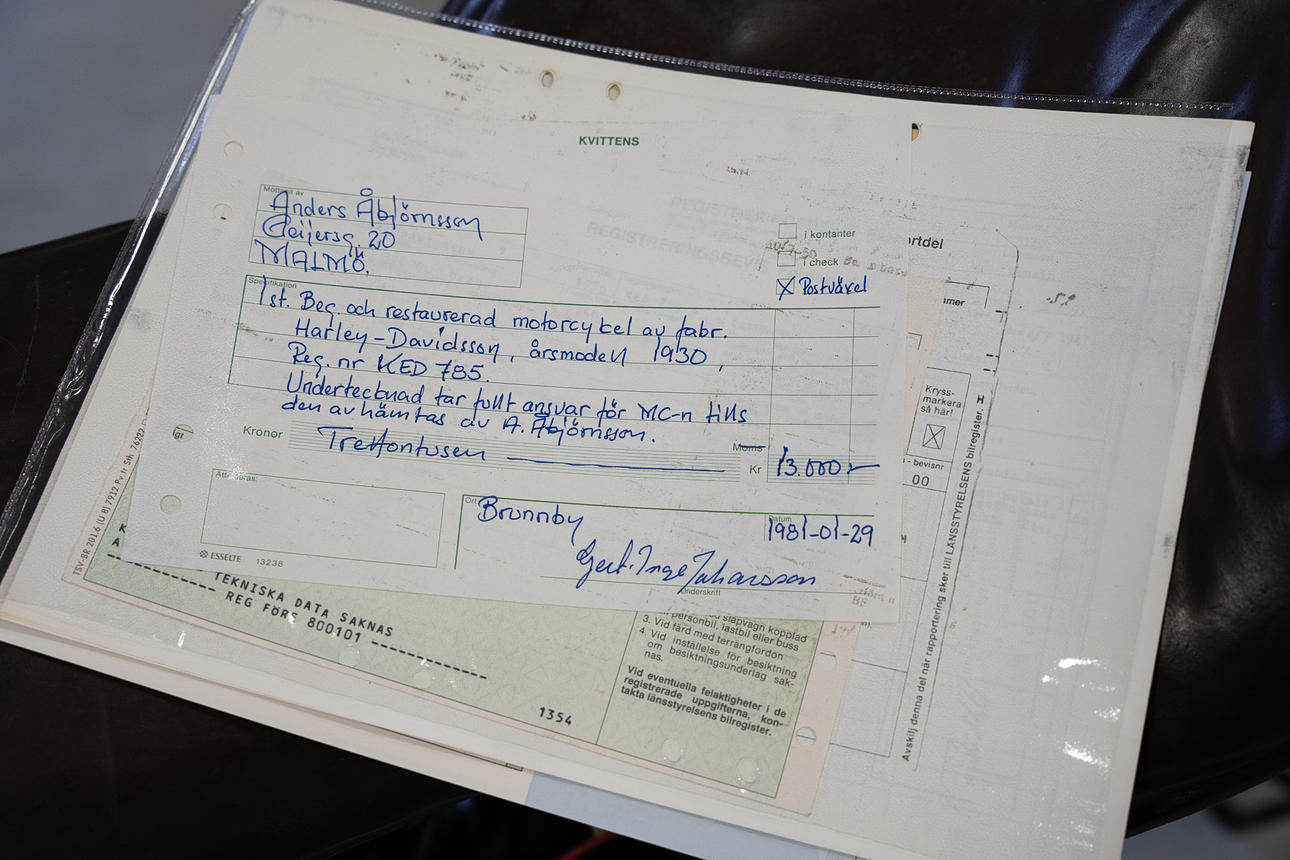 KVITTENS
Mottags av
Anders Åbjörnsson
Geijersg. 20
MALMÖ.
i kontanter
i check
Postväxel
Spesifikation
1st. Beg. och restaurerad motorcykel av fabr.
Harley-Davidsson, årsmodell 1930,
Reg. nr KED 785.
Undertecknad tar fullt ansvar för MC-n tills
den avhämtas av A. Åbjörnsson.
Kronor
Trettontusen
Moms
Kr
13.000-
Attesteras:
Ort
Brunnby
Datum
1981-01-29
Gert-Inge Johansson
Underskrift
ESSELTE
13238
ortdel
mer
Kryss-
markera
så här!
- bevisnr
00
H
Avskilj denna del när rapportering sker till LÄNSSTYRELSENS bilregister.
TSV-BR 201.6 (U 8) 7912 Pv fr Sth 76222
K
A
TEKNISKA DATA SAKNAS
REG FÖRE 800101
1354
släpvagn kopplad
personbil, lastbil eller buss
3. Vid färd med terrängfordon
4. Vid inställelse för besiktning
om besiktningsunderlag sak-
nas.
Vid eventuella felaktigheter i de
registrerade uppgifterna, kon-
takta länsstyrelsens bilregister.